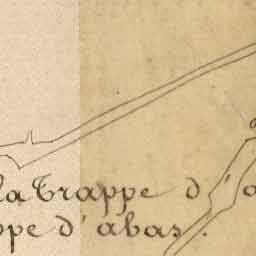 la Trappe d'a
ppe d'abas.